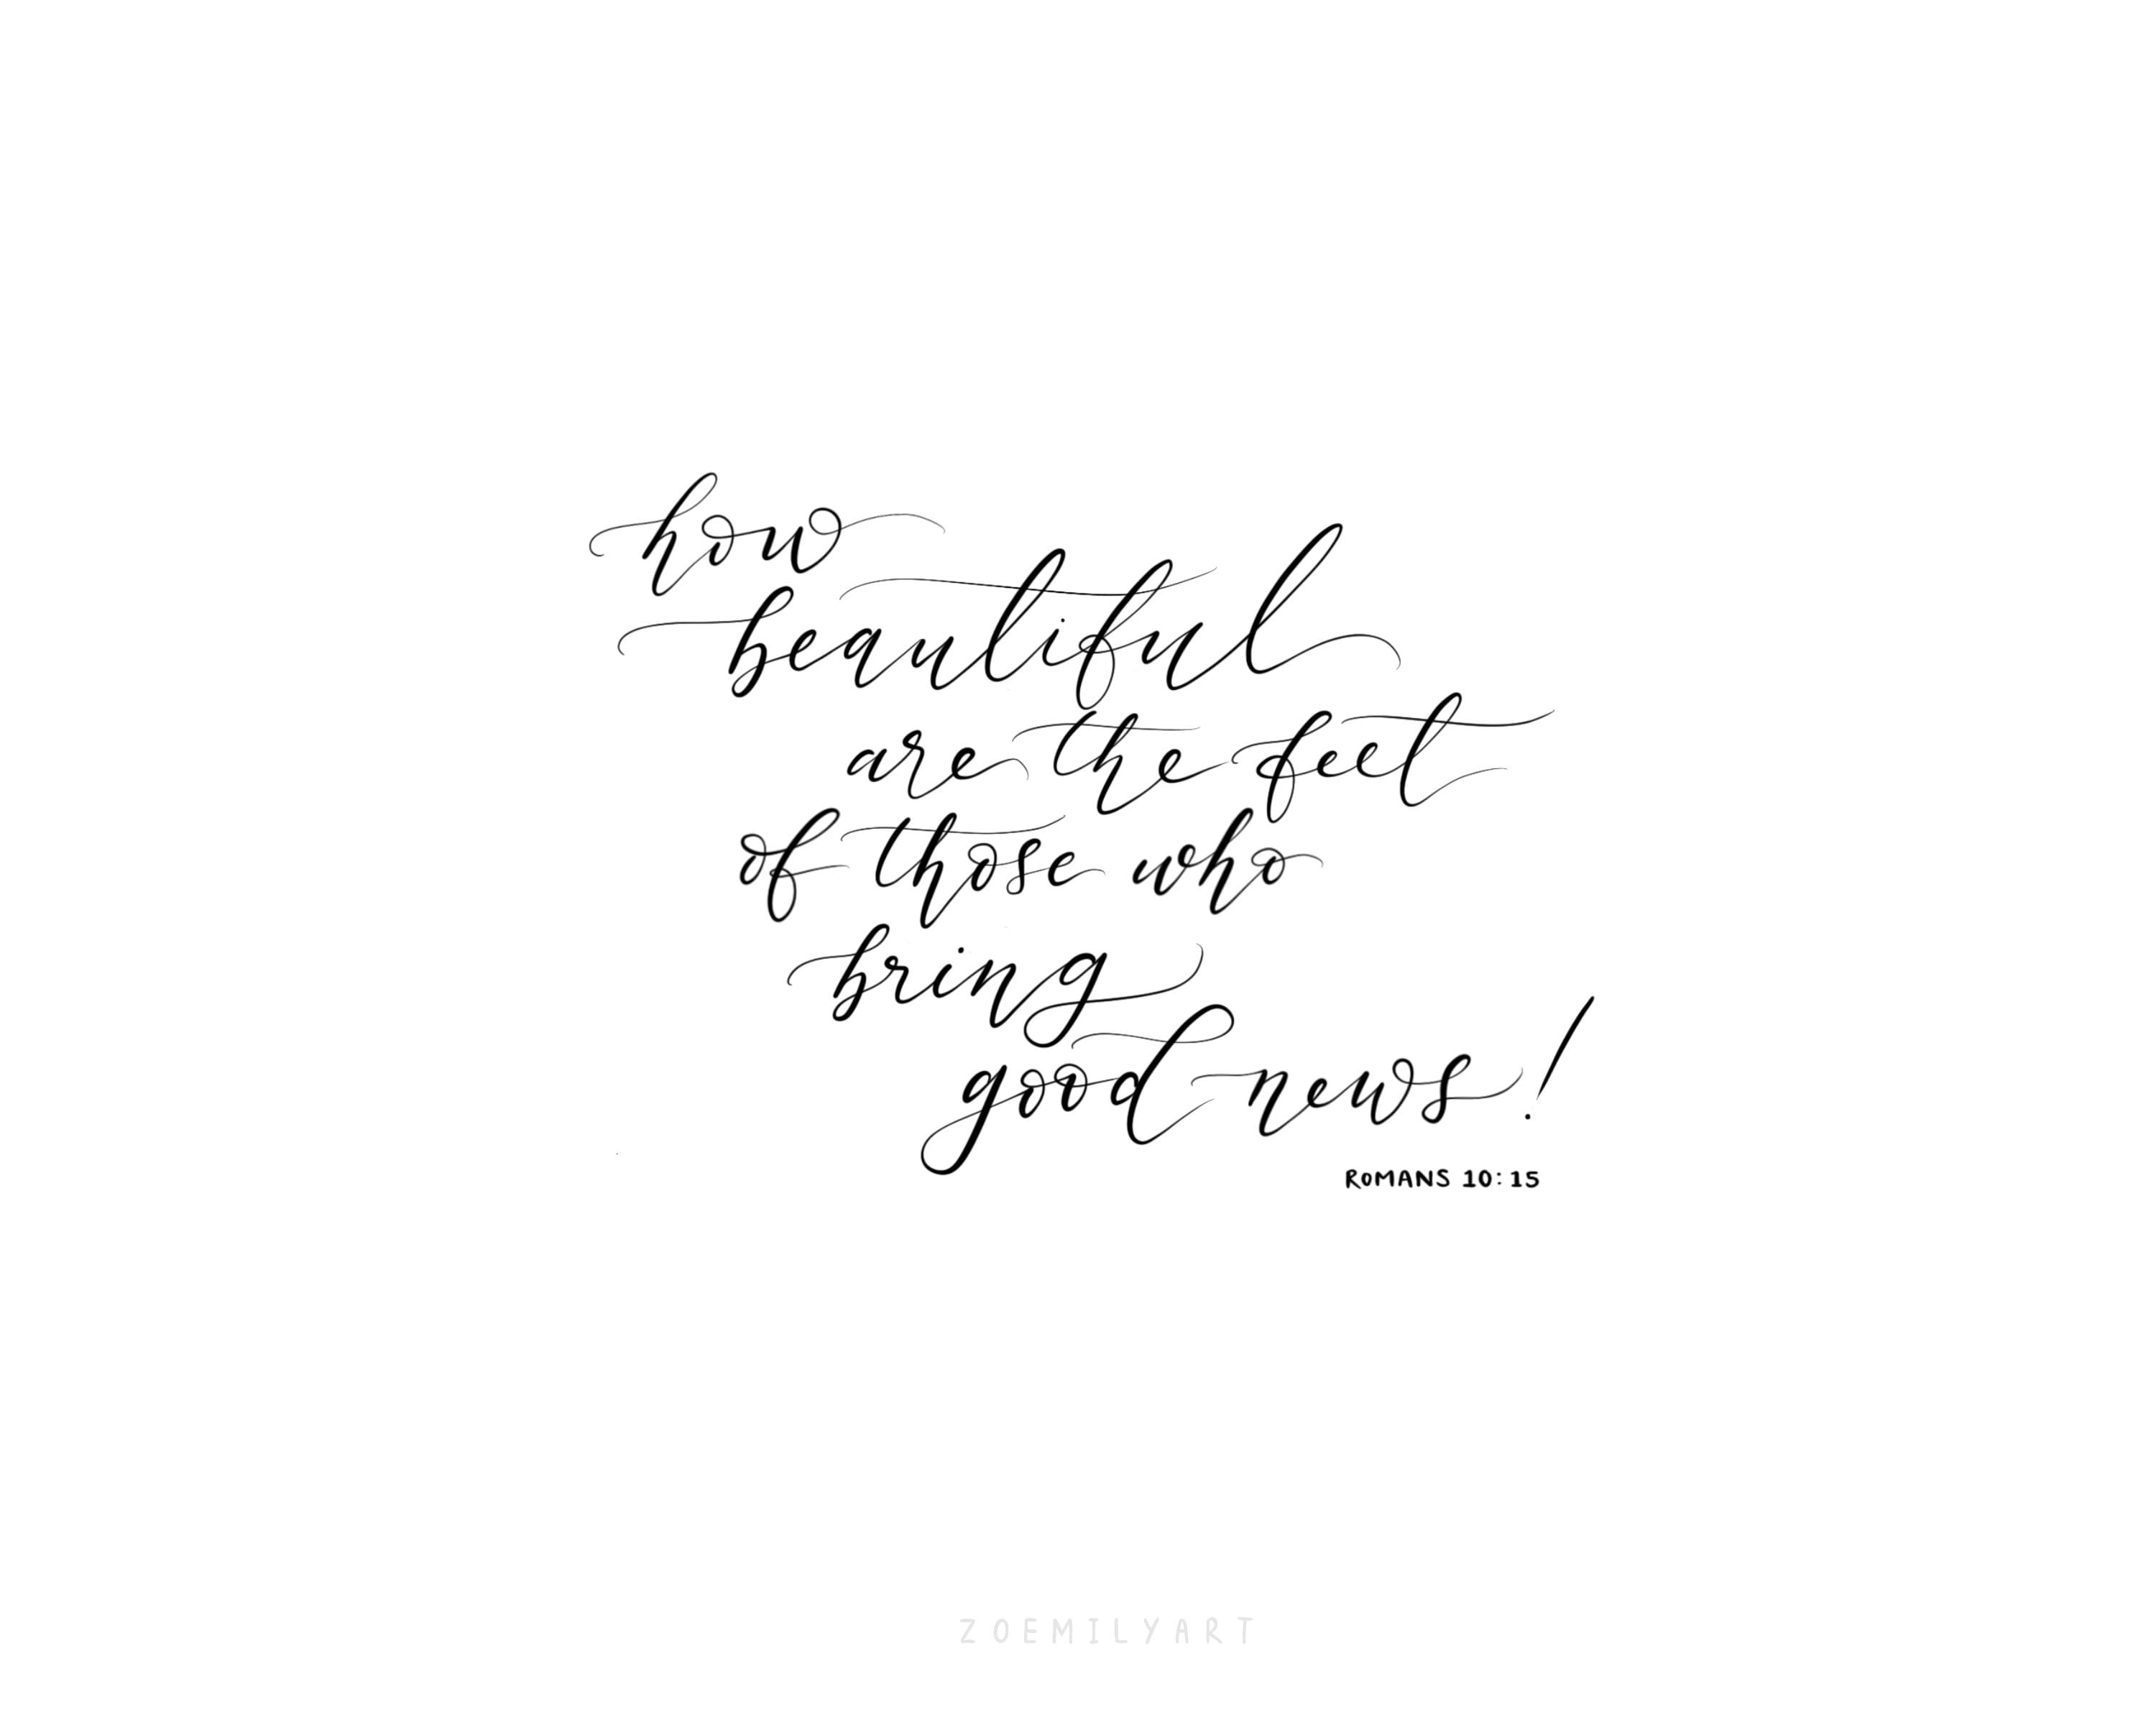 how
beautiful
are the feet
of those who
bring
good news!
ROMANS 10:15
ZOEMILYART